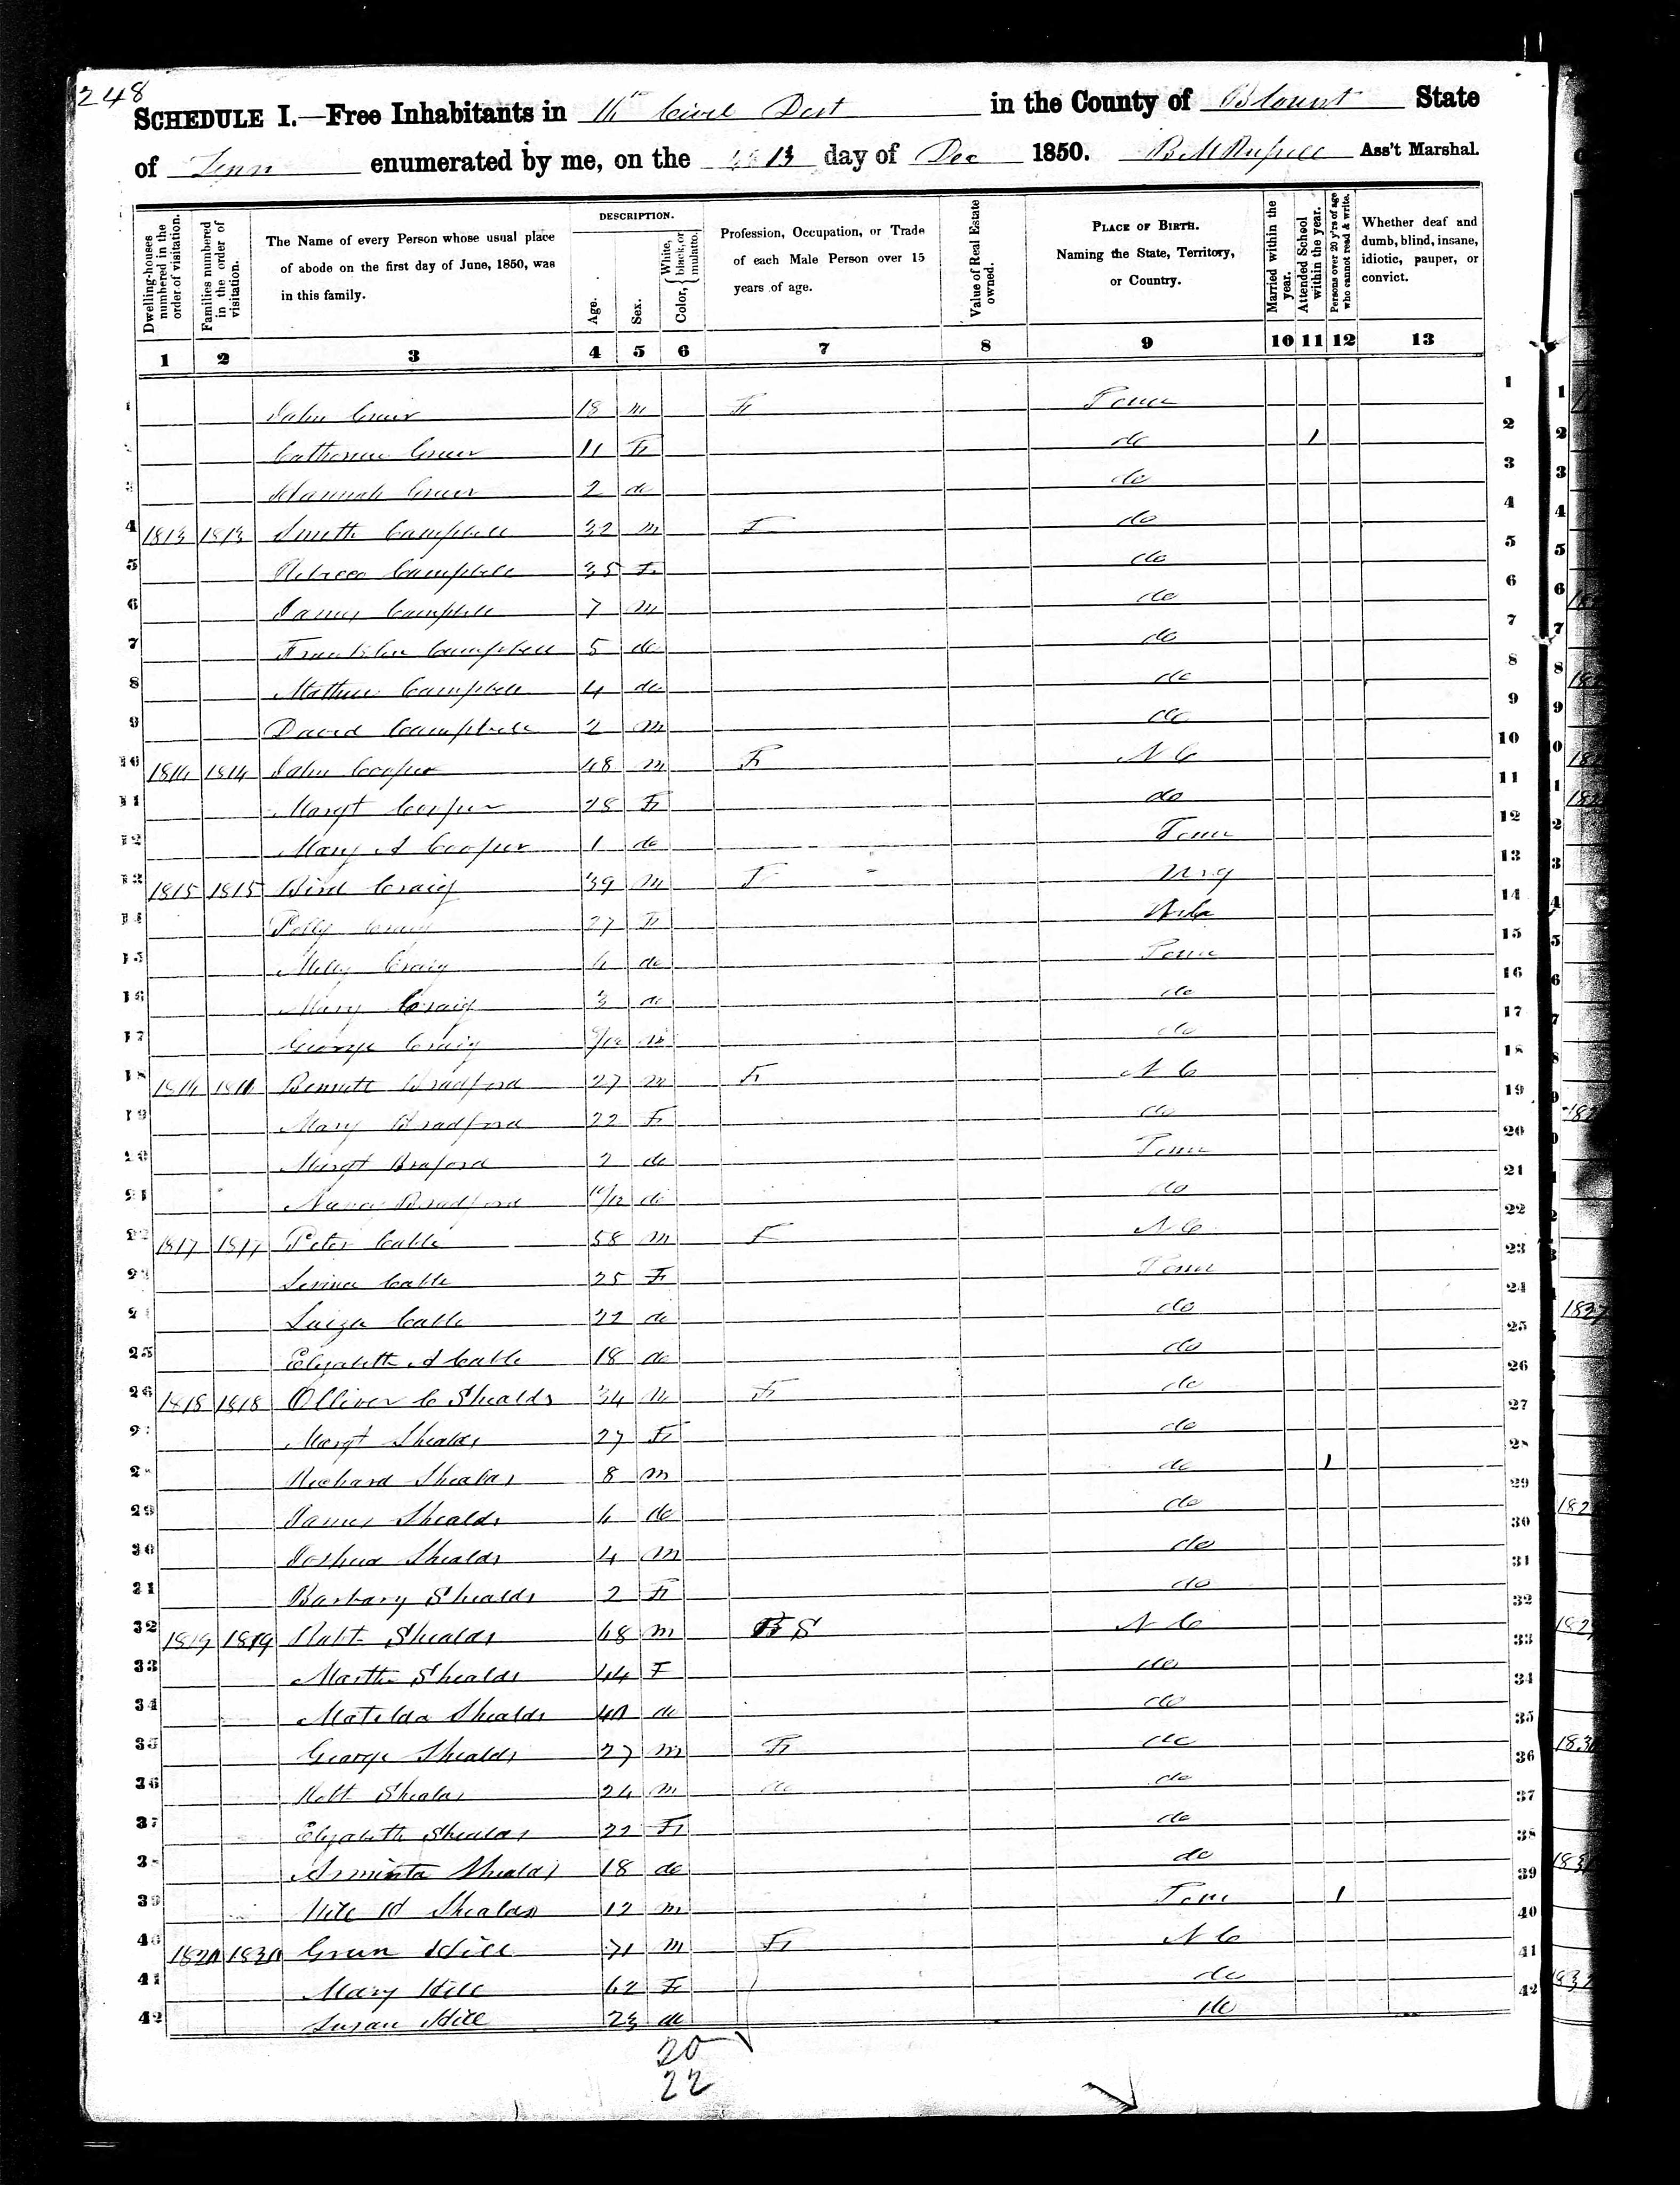 248
SCHEDULE I.—Free Inhabitants in 16th Civil Dist in the County of Blount State
of Tenn enumerated by me, on the 13 day of Dec 1850. Ass't Marshal.
Dwelling-houses numbered in the order of visitation.
Families numbered in the order of visitation.
The Name of every Person whose usual place of abode on the first day of June, 1850, was in this family.
DESCRIPTION.
Age.
Sex.
Color, White, black, or mulatto.
Profession, Occupation, or Trade of each Male Person over 15 years of age.
Value of Real Estate owned.
PLACE OF BIRTH. Naming the State, Territory, or Country.
Married within the year.
Attended School within the year.
Persons over 20 y'rs of age who cannot read & write.
Whether deaf and dumb, blind, insane, idiotic, pauper, or convict.
1 2 3 4 5 6 7 8 9 10 11 12 13
1 John 18 m Fr Tenn 1
2 Catherine 11 F do 1 2
3 Hannah 2 do do 3
4 1813 1813 Smith Campbell 32 m F do 4
5 Rebecca Campbell 35 F do 5
6 James Campbell 7 m do 6
7 Franklin Campbell 5 do do 7
8 Campbell 4 do do 8
9 David Campbell 2 m do 9
10 1814 1814 John Cooper 48 m Fr N C 10
11 Margt Cooper 28 F do 11
12 Mary A Cooper 1 do Tenn 12
13 1815 1815 Bird Craig 39 m F 13
14 Polly Craig 27 F 14
15 Craig 6 do Tenn 15
16 Mary Craig 3 do do 16
17 George Craig /12 m do 17
18 Bennett Bradford 27 m Fr N C 18
19 Mary Bradford 22 F do 19
20 Margt Braford 2 do Tenn 20
21 Bradford 10/12 do do 21
22 1817 1817 Peter Cable 58 m F N C 22
23 Cable 25 F Tenn 23
24 Cable 22 do do 24
25 Elizabeth A Cable 18 do do 25
26 1818 1818 Olliver C Shealds 34 m Fr do 26
27 Margt Shealds 27 F do 27
28 Richard Shealds 8 m do 1 28
29 James Shealds 6 do do 29
30 Joshua Shealds 4 m do 30
31 Barbary Shealds 2 F do 31
32 1819 1819 Robt Shealds 48 m S N C 32
33 Martha Shealds 44 F do 33
34 Matilda Shealds 40 do do 34
35 George Shealds 27 m Fr do 35
36 Robt Shealds 24 m do do 36
37 Elizabeth Shealds 22 F do 37
38 Arminta Shealds 18 do do 38
39 Shealds 12 m Tenn 1 39
40 1820 1820 Green Hill 71 m Fr N C 40
41 Mary Hill 62 F do 41
42 Susan Hill 23 do do 42
20
22